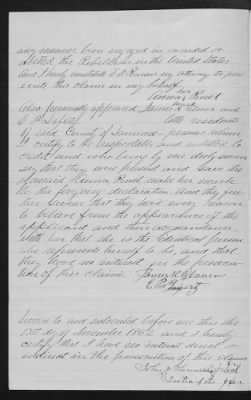 any manner been engaged in or aided or
abetted the Rebellion in the United States
And I hereby constitute E P Parson my attorney to pros
ecute this claim in my behalf
her
mark
Also personally appeared James K Glover and
E P Tagert both residents
of said County of persons whom
I certify to be respectable and entitled to
credit and who being by me duly sworn
say that they were present and saw the
claimant her mark
to the foregoing declaration and further
swear that they have every reason
to believe from the appearance of the
applicant and their acquaintance
with her that she is the identical person
she represents herself to be and that
they have no interest in the prosecu
tion of this claim. James K Glover
E P Tagert
Sworn to and subscribed before me this the
day of November 1862 and I hereby
certify that I have no interest direct or
indirect in the prosecution of this claim
Justice of the peace